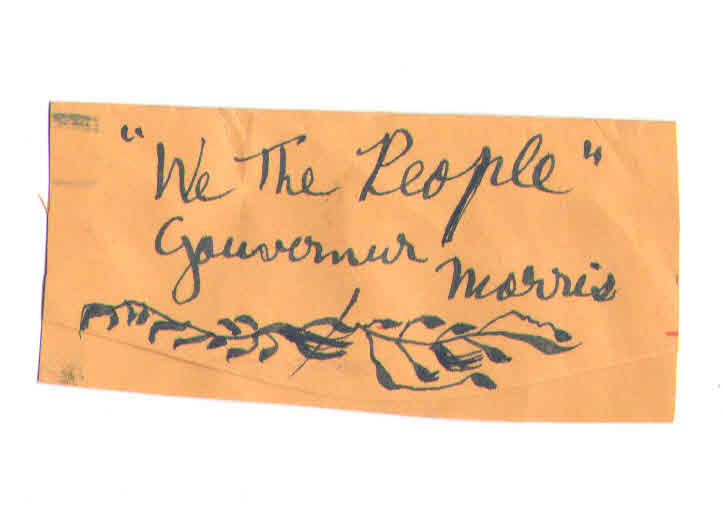 "We The People"
Gouvernur Morris